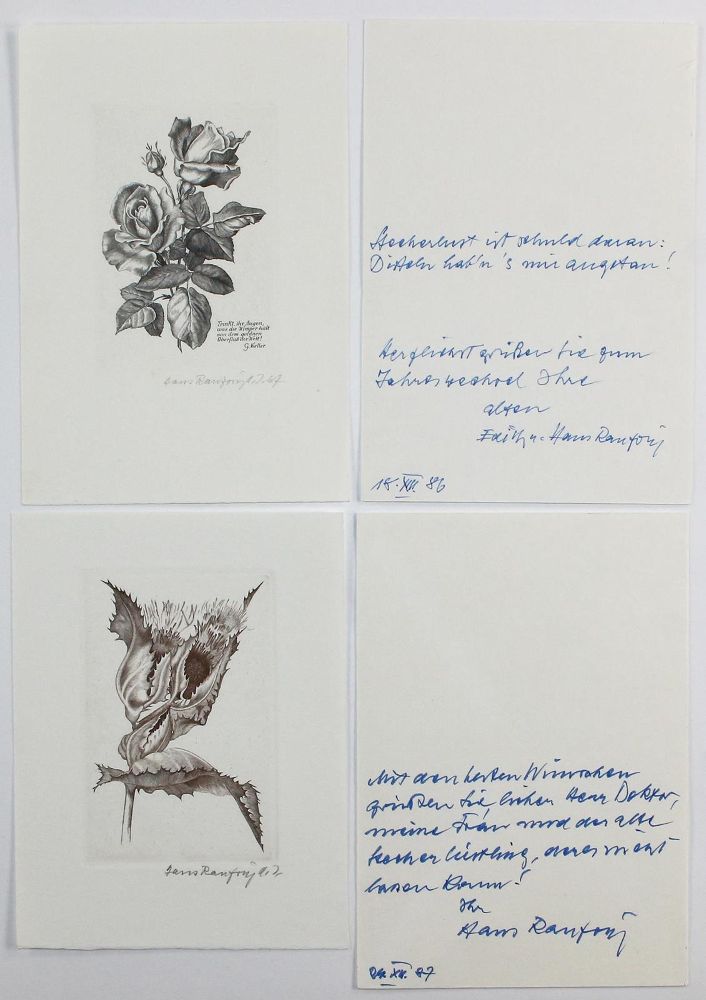 Trinkt, ihr Augen,
was die Wimper hält
von dem goldnen
Überfluß der Welt!
G. Keller
Hans Ranzoni d. J. 67
Stecherlust ist schuld daran:
Disteln hab'n's mir angetan!
Herzlichst grüßen Sie zum
Jahreswechsel Ihre
alten
Edith u. Hans Ranzoni
18. XII. 86
Hans Ranzoni d. J.
Mit den besten Wünschen
grüßen Sie, lieber Herr Doktor,
meine Frau und der alte
Stecherlüstling, der es nicht
lassen kann!
Ihr
Hans Ranzoni
XII. 87